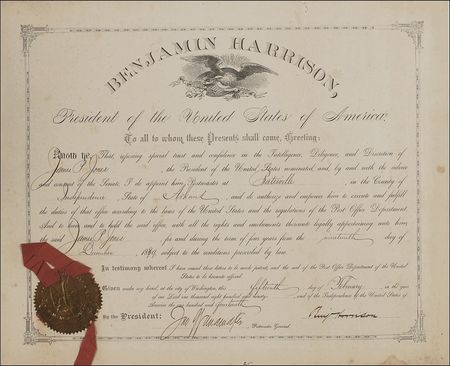 BENJAMIN HARRISON,
President of the United States of America,
To all to whom these Presents shall come, Greeting:
Know Ye, That, reposing special trust and confidence in the Intelligence, Diligence, and Discretion of
James P. Jones, the President of the United States nominated, and by and with the advice
and consent of the Senate, I do appoint him Postmaster at Batesville, in the County of
Independence, State of, and do authorize and empower him to execute and fulfill
the duties of that office according to the laws of the United States and the regulations of the Post Office Department,
And to have and to hold the said office, with all the rights and emoluments thereunto legally appertaining unto him
the said James P. Jones, for and during the term of four years from the nineteenth day of
December 1889, subject to the conditions prescribed by law.
In testimony whereof I have caused these letters to be made patent, and the seal of the Post Office Department of the United
States to be hereunto affixed.
Given under my hand, at the city of Washington, the fifteenth day of February, in the year
of our Lord one thousand eight hundred and ninety, and of the Independence of the United States of
America the one hundred and fourteenth.
By the President:
Postmaster General.
Benj Harrison